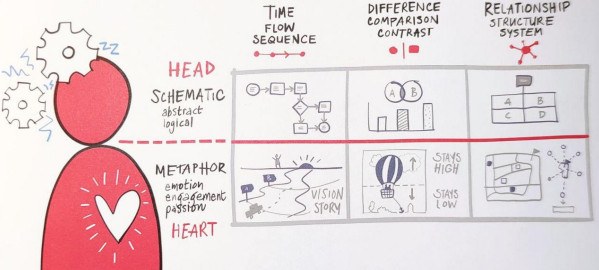 TIME
FLOW
SEQUENCE
DIFFERENCE
COMPARISON
CONTRAST
RELATIONSHIP
STRUCTURE
SYSTEM
ZZ
HEAD
SCHEMATIC
abstract
logical
A B
A B
C D
METAPHOR
emotion
engagement
passion
HEART
VISION
STORY
STAYS
HIGH
STAYS
LOW